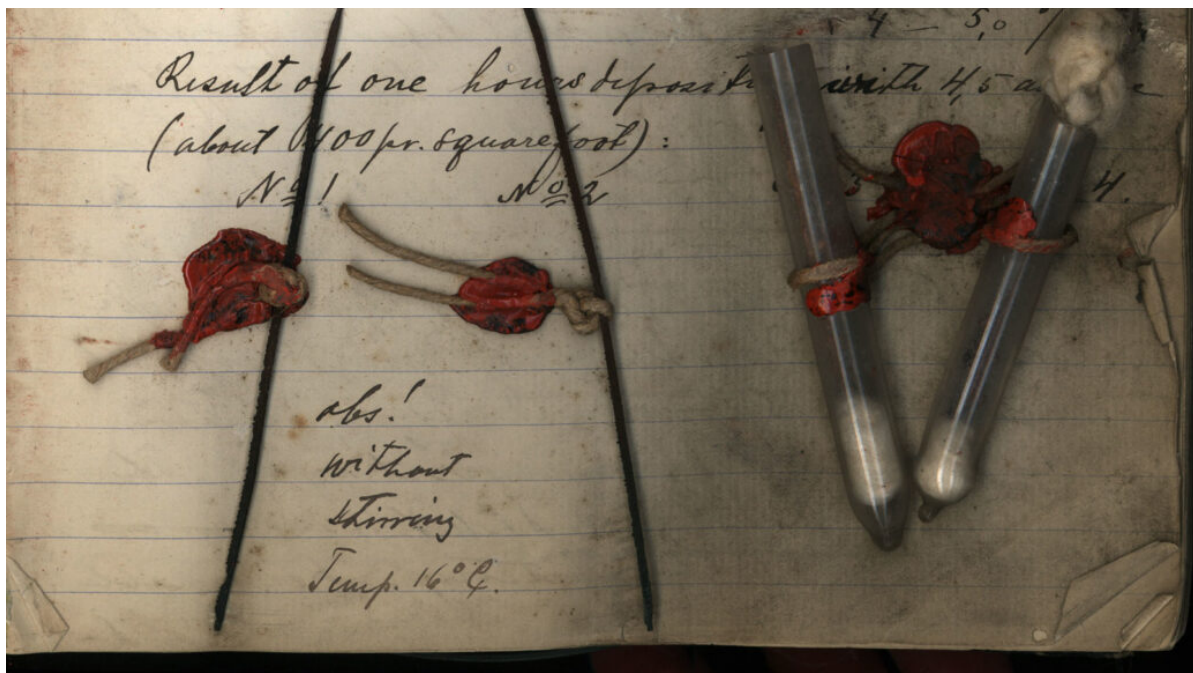 4 — 5,0
Result of one hours deposit with 4,5 a
(about 400 pr. squarefoot):
Nº 1 Nº 2 4.
obs!
without
stirring
Temp. 16° C.